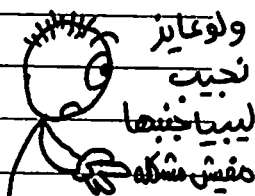 ولو عايز
نجيب
ليبيا جنبها
مفيش مشكله